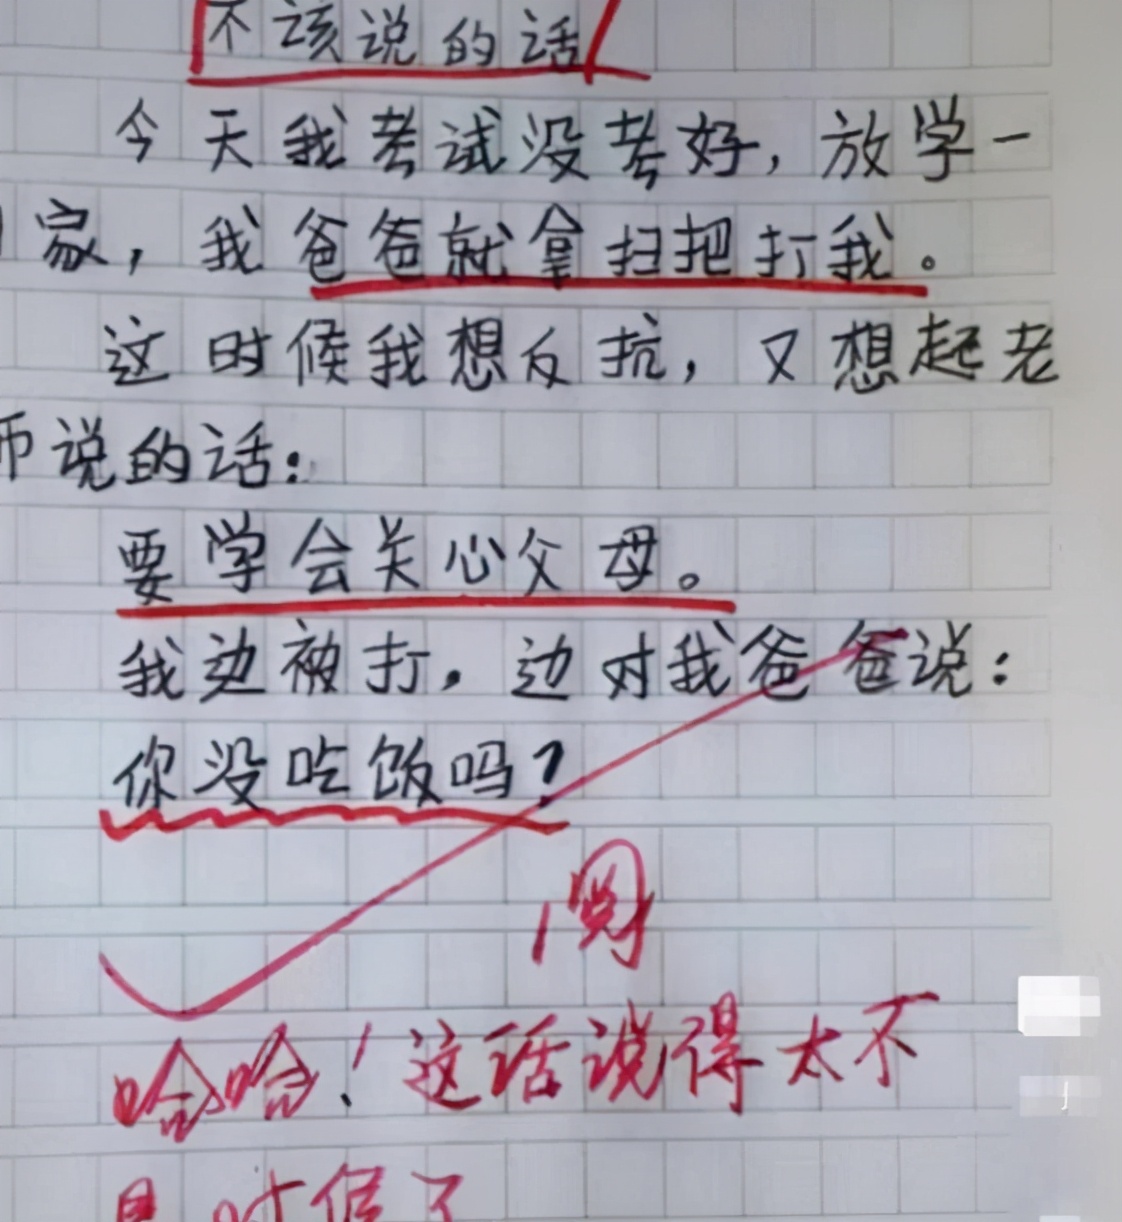 不该说的话
今天我考试没考好，放学一
家，我爸爸就拿扫把打我。
这时候我想反抗，又想起老
师说的话：
要学会关心父母。
我边被打，边对我爸爸说：
你没吃饭吗？
阅
哈哈！这话说得太不
是时候了